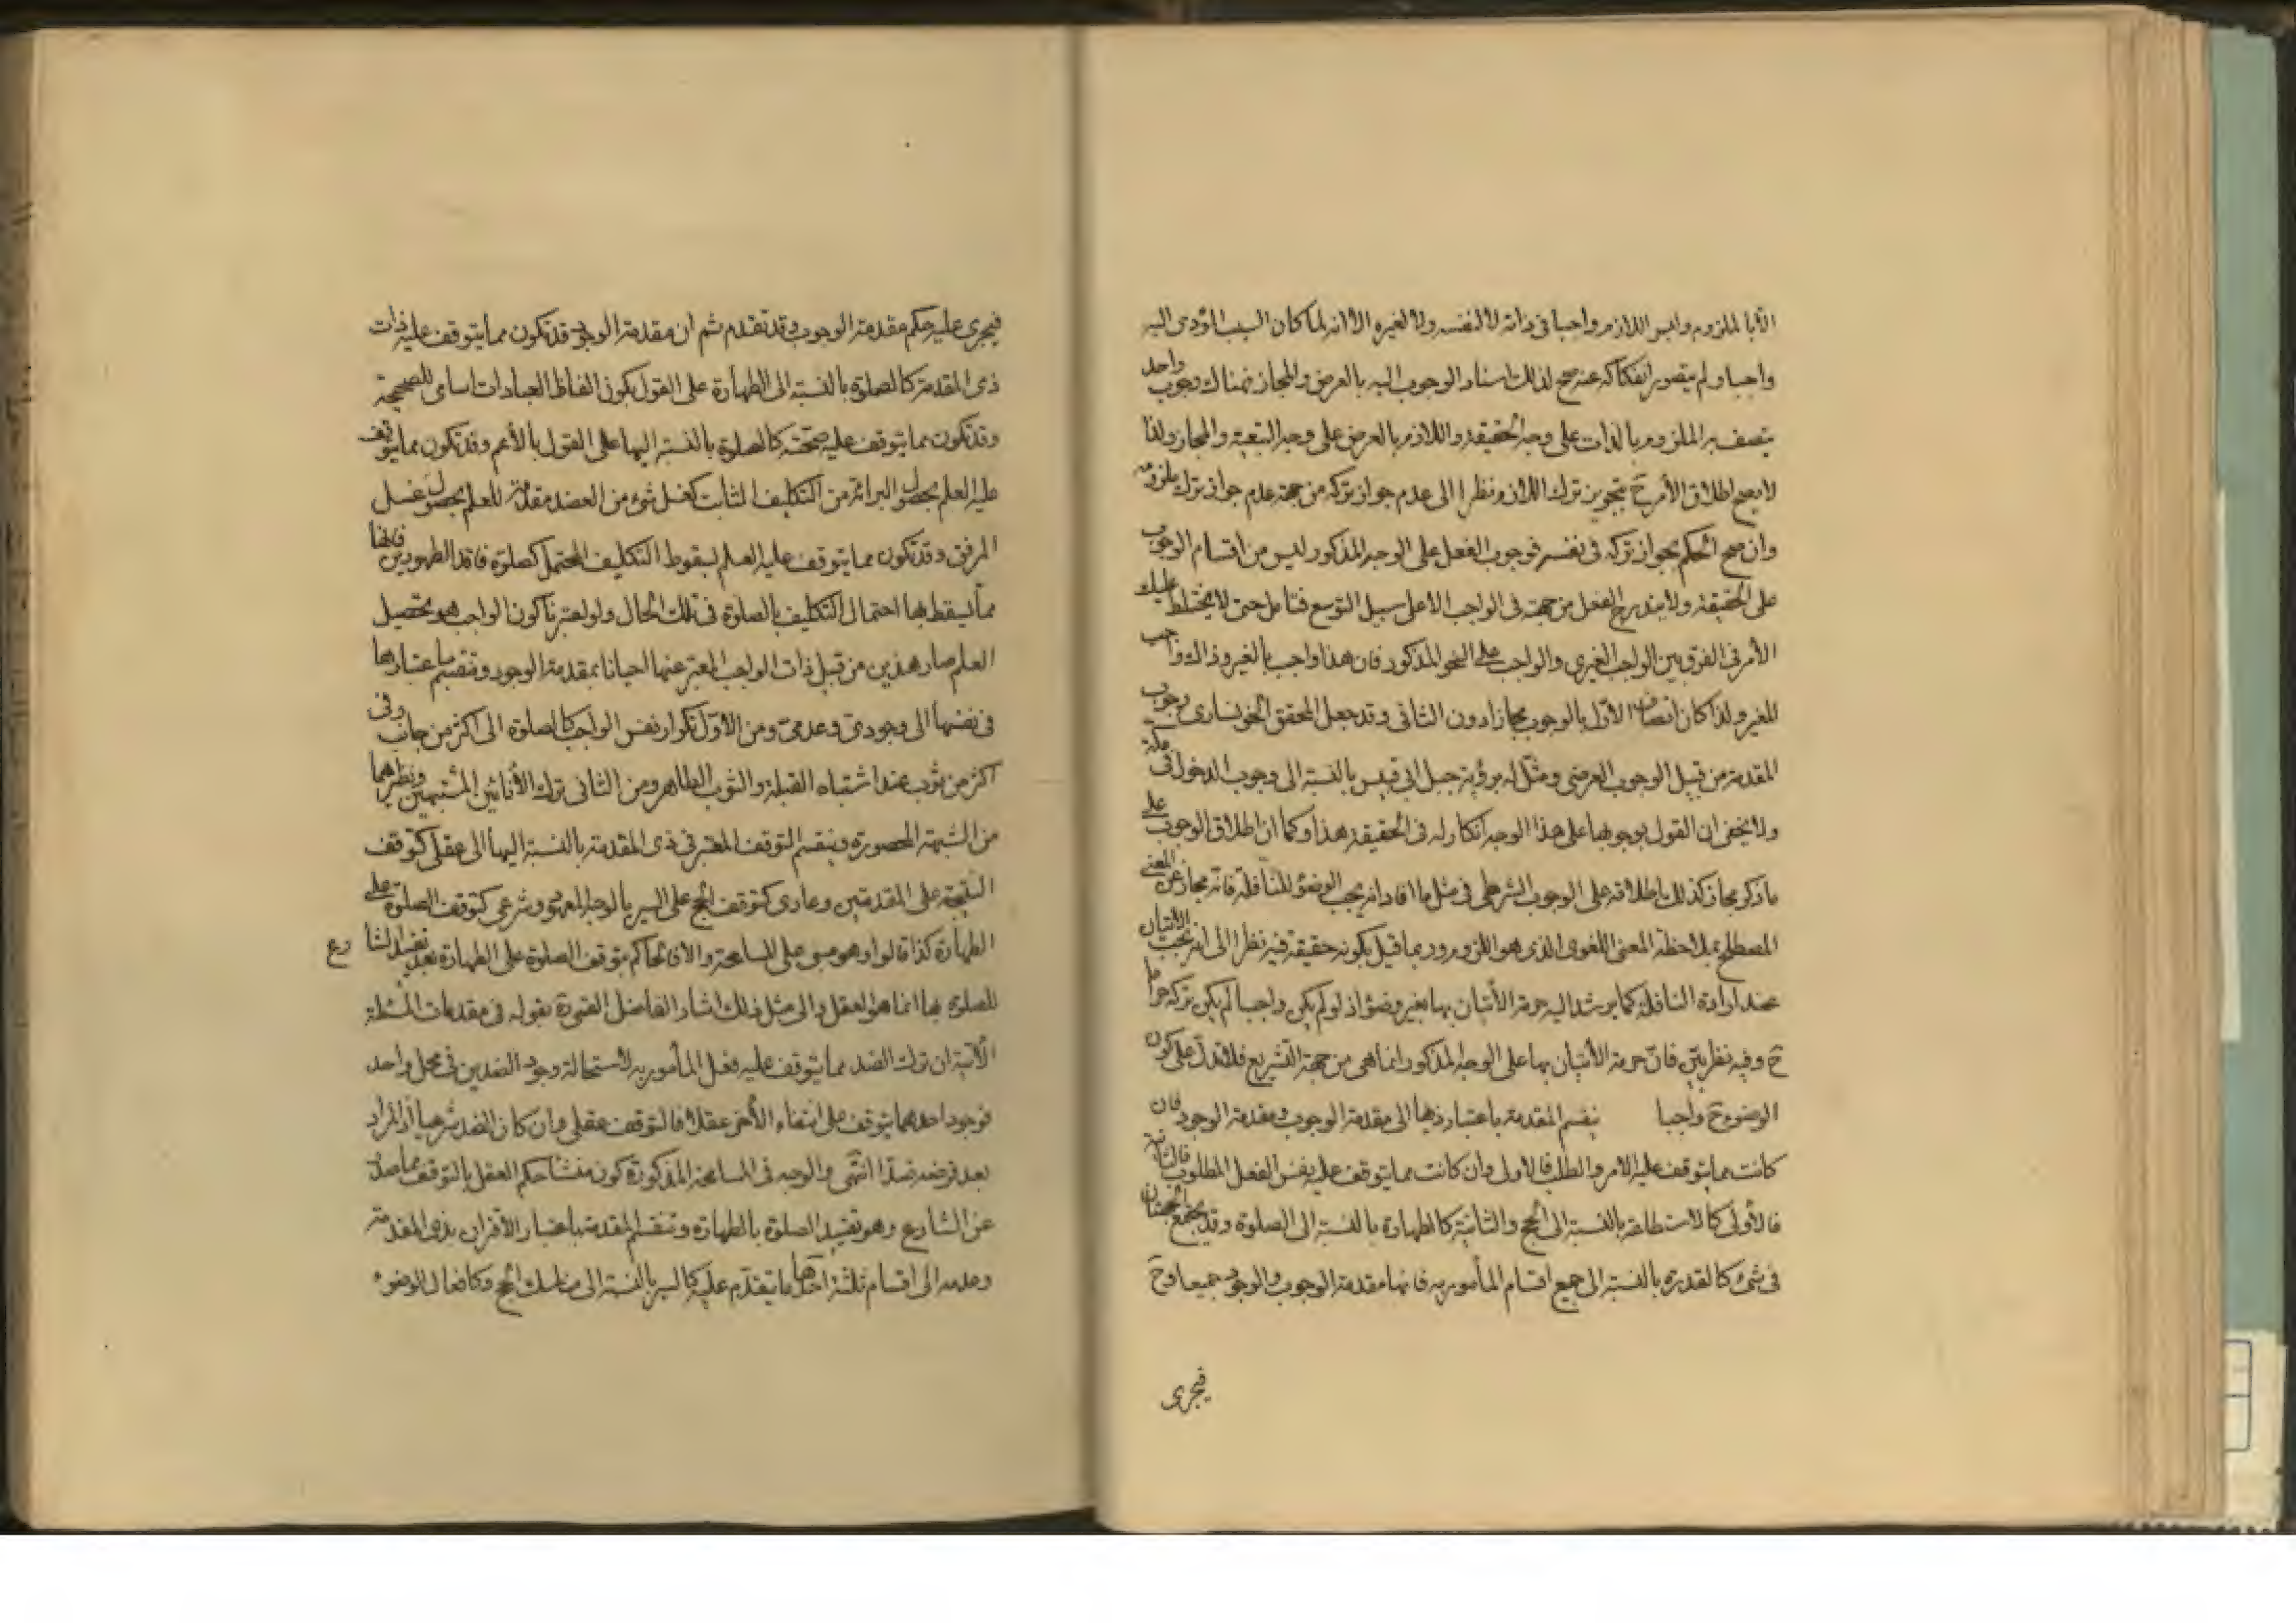 الا بالملزوم وليس اللازم واجبا في ذاته لا لنفسه ولا لغيره الا انه لما كان السبب المؤدى اليه
واجبا ولم يتصور انفكاكه عنه صح لذلك اسناد الوجوب اليه بالعرض والمجاز فهناك وجوب واحد
يتصف به الملزوم بالذات على وجه الحقيقة واللازم بالعرض على وجه التبعية والمجاز ولذا
لا يصح اطلاق الأمر ح بتجويز ترك اللازم نظرا الى عدم جواز تركه من جهة عدم جواز ترك ملزومه
وان صح الحكم بجواز تركه في نفسه فوجوب الفعل على الوجه المذكور ليس من اقسام الوجوب
على الحقيقة ولا يندرج الفعل من جهته في الواجب الا على سبيل التوسع فتامل حتى لا يختلط عليك
الأمر في الفرق بين الواجب الغيرى والواجب على النحو المذكور فان هذا واجب بالغير وذاك واجب
للغير ولذا كان اتصاف الأول بالوجوب مجازا دون الثانى وقد جعل المحقق الخونسارى وجوب
المقدمة من قبيل الوجوب العرضى ومثل له برؤية جبل ابى قبيس بالنسبة الى وجوب الدخول فى مكة
ولا يخفى ان القول بوجوبها على هذا الوجه انكار له فى الحقيقة هذا وكما ان اطلاق الوجوب على
ما ذكر مجاز كذلك اطلاقه على الوجوب الشرطى فى مثل ما افاد انه يجب الوضوء للنافلة فانه مجاز عن المعنى
المصطلح بملاحظة المعنى اللغوى الذى هو اللزوم وربما قيل بكونه حقيقة فيه نظرا الى انه يجب الاتيان
عند ارادة النافلة كما يرشد اليه حرمة الأتيان بها بغير وضوء اذ لو لم يكن واجبا لم يكن تركه حراما
ح وفيه نظر بين فان حرمة الأتيان بها على الوجه المذكور انما هى من جهة التشريع فلا تدل على كون
الوضوء ح واجبا ينقسم المقدمة باعتبار ذيها الى مقدمة الوجوب ومقدمة الوجود فان
كانت مما يتوقف عليه الامر والطلب فالاولى وان كانت مما يتوقف عليه نفس الفعل المطلوب فالثانية
فالأولى كالاستطاعة بالنسبة الى الحج والثانية كالطهارة بالنسبة الى الصلوة وقد يجتمع الجهتان
فى شىء كالقدرة بالنسبة الى جميع اقسام المأمور به فانها مقدمة الوجوب والوجود جميعا وح
فيجرى
فيجرى عليه حكم مقدمة الوجوب وقد تقدم ثم ان مقدمة الوجود قد تكون مما يتوقف عليه ذات
ذى المقدمة كالصلوة بالنسبة الى الطهارة على القول بكون الفاظ العبادات اسامى للصحيحة
وقد تكون مما يتوقف عليه صحته كالصلوة بالنسبة اليها على القول بالأعم وقد تكون مما يتوقف
عليه العلم بحصول البرائة من التكليف الثابت كغسل شىء من العضد مقدمة للعلم بحصول غسل
المرفق وقد تكون مما يتوقف عليه العلم بسقوط التكليف المحتمل كصلوة فاقد الطهورين فانها
مما يسقط بها احتمال التكليف بالصلوة فى تلك الحال ولو اعتبرنا كون الواجب هو تحصيل
العلم صار هذين من قبيل ذات الواجب المعبر عنها احيانا بمقدمة الوجود وتنقسم باعتبارها
فى نفسها الى وجودى وعدمى ومن الأول تكرار نفس الواجب كالصلوة الى اكثر من جانب وفى
اكثر من ثوب عند اشتباه القبلة والثوب الطاهر ومن الثانى ترك الأنائين المشتبهين ونظرهما
من الشبهة المحصورة وينقسم التوقف المعتبر فى ذى المقدمة بالنسبة اليها الى عقلى كتوقف
النتيجة على المقدمتين وعادى كتوقف الحج على السير بالوجه المعهود وشرعى كتوقف الصلوة على
الطهارة كذا قالوا وهو مبنى على المسامحة والا فالحاكم بتوقف الصلوة على الطهارة بعد تقييد الشارع
للصلوة بها انما هو العقل والى مثل ذلك اشار الفاضل بقوله فى مقدمات المسئلة
الآتية ان ترك الضد مما يتوقف عليه فعل المأمور به لاستحالة وجود الضدين فى محل واحد
فوجود احدهما يتوقف على انتفاء الأخر عقلا فالتوقف عقلى وان كان الضد شرعيا اذ المراد
بعد فرضه ضدا انتهى والوجه فى المسامحة المذكورة كون منشأ حكم العقل بالتوقف مما صدر
عن الشارع وهو تقييد الصلوة بالطهارة وتنقسم المقدمة باعتبار الاقتران بذى المقدمة
وعدمه الى اقسام ثلثة احدها ما يتقدم عليه كالسير بالنسبة الى مناسك الحج وكافعال الوضوء